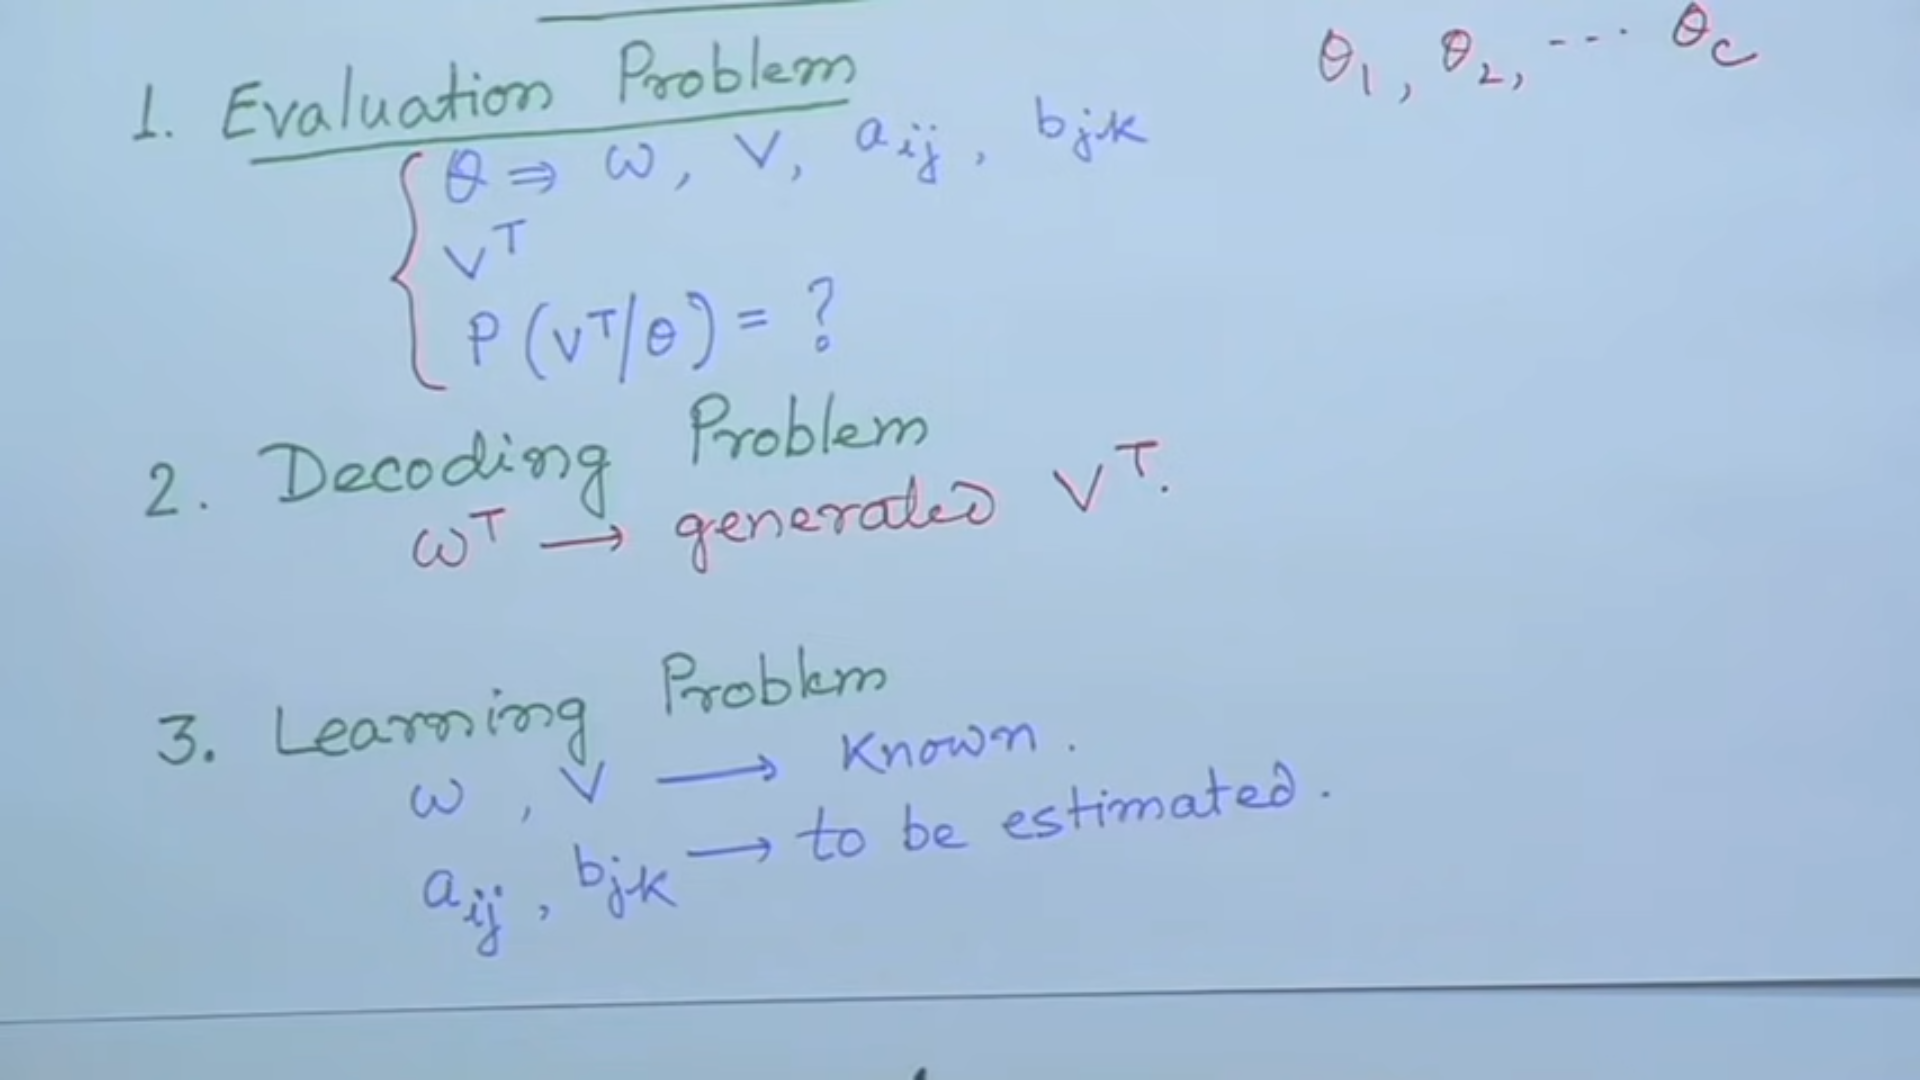 1. Evaluation Problem
θ₁, θ₂, ---- θc
θ ⇒ ω, V, aij, bjk
Vᵀ
P(Vᵀ/θ) = ?
2. Decoding Problem
ωᵀ → generated Vᵀ.
3. Learning Problem
ω, V → Known.
aij, bjk → to be estimated.